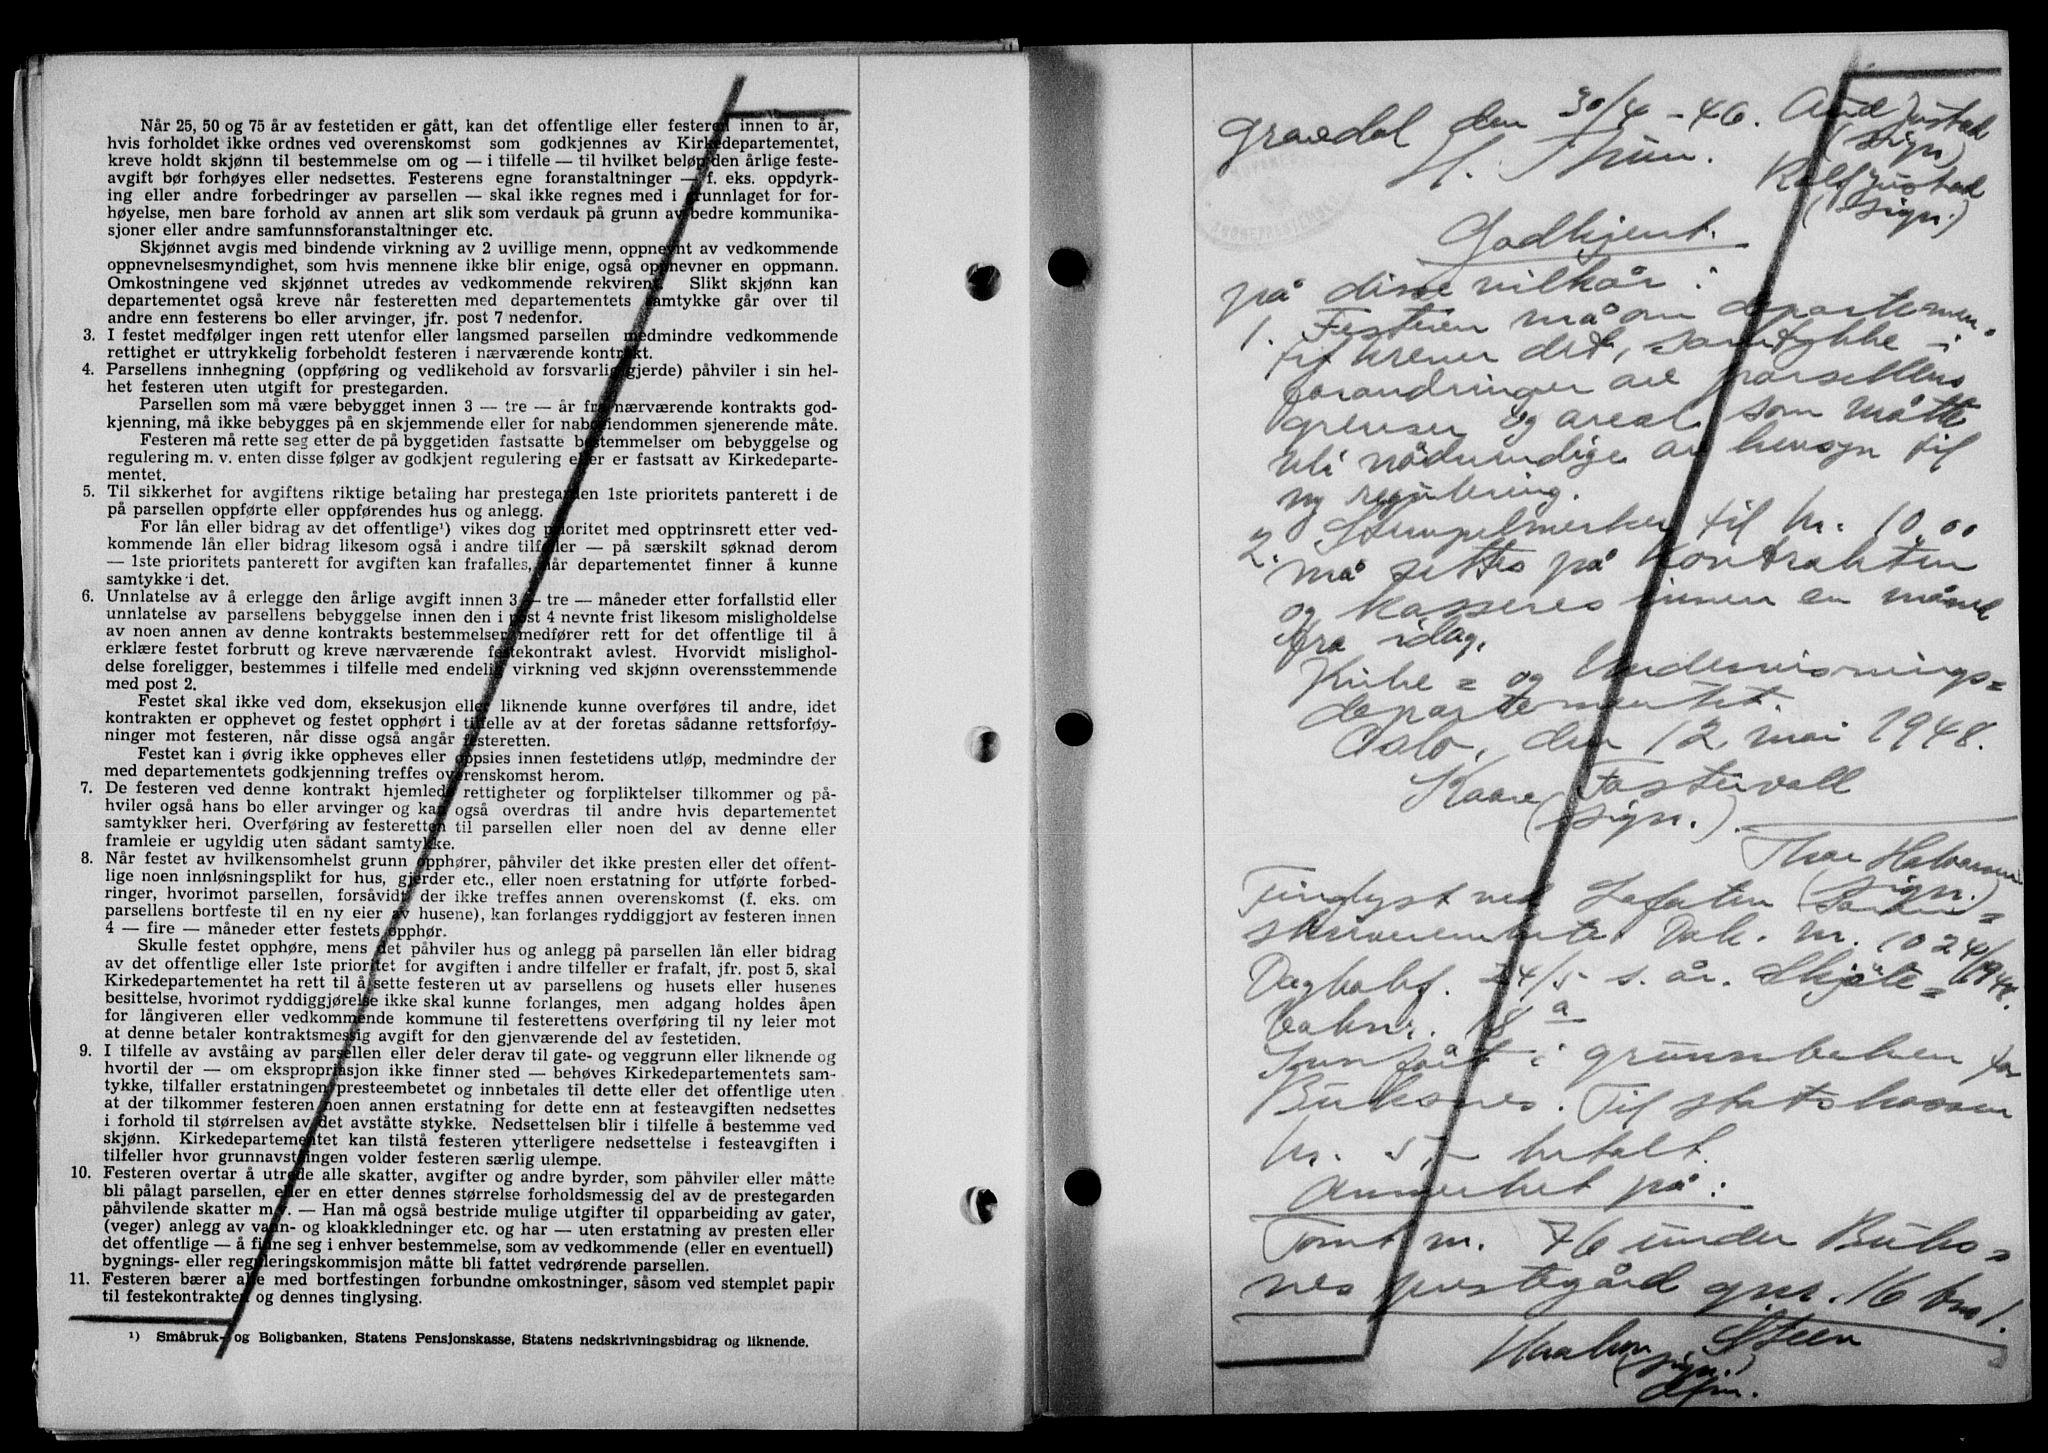 Når 25, 50 og 75 år av festetiden er gått, kan det offentlige eller festeren innen to år,
hvis forholdet ikke ordnes ved overenskomst som godkjennes av Kirkedepartementet,
kreve holdt skjønn til bestemmelse om og — i tilfelle — til hvilket beløp den årlige feste-
avgift bør forhøyes eller nedsettes. Festerens egne foranstaltninger — f. eks. oppdyrk-
ing eller andre forbedringer av parsellen — skal ikke regnes med i grunnlaget for for-
høyelse, men bare forhold av annen art slik som verdauk på grunn av bedre kommunika-
sjoner eller andre samfunnsforanstaltninger etc.
Skjønnet avgis med bindende virkning av 2 uvillige menn, oppnevnt av vedkommende
oppnevnelsesmyndighet, som hvis mennene ikke blir enige, også oppnevner en oppmann.
Omkostningene ved skjønnet utredes av vedkommende rekvirent. Slikt skjønn kan
departementet også kreve når festeretten med departementets samtykke går over til
andre enn festerens bo eller arvinger, jfr. post 7 nedenfor.
3. I festet medfølger ingen rett utenfor eller langsmed parsellen medmindre vedkommende
rettighet er uttrykkelig forbeholdt festeren i nærværende kontrakt.
4. Parsellens innhegning (oppføring og vedlikehold av forsvarlig gjerde) påhviler i sin hel-
het festeren uten utgift for prestegarden.
Parsellen som må være bebygget innen 3 — tre — år fra nærværende kontrakts god-
kjenning, må ikke bebygges på en skjemmende eller for naboeiendommen sjenerende måte.
Festeren må rette seg etter de på byggetiden fastsatte bestemmelser om bebyggelse og
regulering m. v. enten disse følger av godkjent regulering eller er fastsatt av Kirkedeparte-
mentet.
5. Til sikkerhet for avgiftens riktige betaling har prestegarden 1ste prioritets panterett i de
på parsellen oppførte eller oppførendes hus og anlegg.
For lån eller bidrag av det offentlige¹) vikes dog prioritet med opptrinsrett etter ved-
kommende lån eller bidrag likesom også i andre tilfeller — på særskilt søknad derom
— 1ste prioritets panterett for avgiften kan frafalles, når departementet finner å kunne
samtykke i det.
6. Unnlatelse av å erlegge den årlige avgift innen 3 — tre — måneder etter forfallstid eller
unnlatelse av parsellens bebyggelse innen den i post 4 nevnte frist likesom misligholdelse
av noen annen av denne kontrakts bestemmelser medfører rett for det offentlige til å
erklære festet forbrutt og kreve nærværende festekontrakt avlest. Hvorvidt misligh-
oldelse foreligger, bestemmes i tilfelle med endelig virkning ved skjønn overensstemmende
med post 2.
Festet skal ikke ved dom, eksekusjon eller liknende kunne overføres til andre, idet
kontrakten er opphevet og festet opphørt i tilfelle av at der foretas sådanne rettsforføy-
ninger mot festeren, når disse også angår festeretten.
Festet kan i øvrig ikke oppheves eller oppsies innen festetidens utløp, medmindre der
med departementets godkjenning treffes overenskomst herom.
7. De festeren ved denne kontrakt hjemlede rettigheter og forpliktelser tilkommer og på-
hviler også hans bo eller arvinger og kan også overdras til andre hvis departementet
samtykker heri. Overføring av festeretten til parsellen eller noen del av denne eller
framleie er ugyldig uten sådant samtykke.
8. Når festet av hvilkensomhelst grunn opphører, påhviler det ikke presten eller det offent-
lige noen innløsningsplikt for hus, gjerder etc., eller noen erstatning for utførte forbed-
ringer, hvorimot parsellen, forsåvidt der ikke treffes annen overenskomst (f. eks. om
parsellens bortfeste til en ny eier av husene), kan forlanges ryddiggjort av festeren innen
4 — fire — måneder etter festets opphør.
Skulle festet opphøre, mens det påhviler hus og anlegg på parsellen lån eller bidrag
av det offentlige eller 1ste prioritet for avgiften i andre tilfeller er frafalt, jfr. post 5, skal
Kirkedepartementet ha rett til å sette festeren ut av parsellens og husets eller husenes
besittelse, hvorimot ryddiggjørelse ikke skal kunne forlanges, men adgang holdes åpen
for långiveren eller vedkommende kommune til festerettens overføring til ny leier mot
at denne betaler kontraktsmessig avgift for den gjenværende del av festetiden.
9. I tilfelle av avståing av parsellen eller deler derav til gate- og veggrunn eller liknende og
hvortil der — om ekspropriasjon ikke finner sted — behøves Kirkedepartementets sam-
tykke, tilfaller erstatningen presteembetet og innbetales til dette eller det offentlige uten
at der tilkommer festeren noen annen erstatning for dette enn at festeavgiften nedsettes
i forhold til størrelsen av det avståtte stykke. Nedsettelsen blir i tilfelle å bestemme ved
skjønn. Kirkedepartementet kan tilstå festeren ytterligere nedsettelse i festeavgiften i
tilfeller hvor grunnavståingen volder festeren særlig ulempe.
10. Festeren overtar å utrede alle skatter, avgifter og andre byrder, som påhviler eller måtte
bli pålagt parsellen, eller en etter dennes størrelse forholdsmessig del av de prestegarden
påhvilende skatter m.v. — Han må også bestride mulige utgifter til opparbeiding av gater,
(veger) anlegg av vann- og kloakkledninger etc. og har — uten erstatning av presten eller
det offentlige — å finne seg i enhver bestemmelse, som av vedkommende (eller en eventuell)
bygnings- eller reguleringskommisjon måtte bli fattet vedrørende parsellen.
11. Festeren bærer alle med bortfestingen forbundne omkostninger, såsom ved stemplet papir
til festekontrakten og dennes tinglysing.
¹) Småbruk- og Boligbanken, Statens Pensjonskasse, Statens nedskrivningsbidrag og liknende.
Gravdal den 30/4 - 46. Aud Justad
(sign)
H. Thun. Rolf Justad
(sign.)
Godkjent.
på disse vilkår:
1. Festeren må om departemen-
tet krever det, samtykke i
forandringer av parsellens
grenser og areal som måtte
bli nødvendige av hensyn til
ny regulering.
2. Stempelmerker til kr. 10.00
må settes på kontrakten
og kasseres innen en måned
fra idag.
Kirke- og Undervisnings-
departementet.
Oslo, den 12 mai 1948.
Kaare Fostervoll
(sign.).
Thor Halvorsen
(sign.)
Tinglyst ved Lofoten Soren-
skriverembete Dok. nr. 1024/1948.
Dagbokf. 24/5 s. år. Skjøte-
bok nr. 18 a
Innført i grunnboken for
Buksnes. Til statskassen
kr. 5,- betalt.
Anmerket på:
Tomt nr. 76 under Buks-
nes prestegård gnr. 16 bnr 1.
Haakon Steen
(sign.)